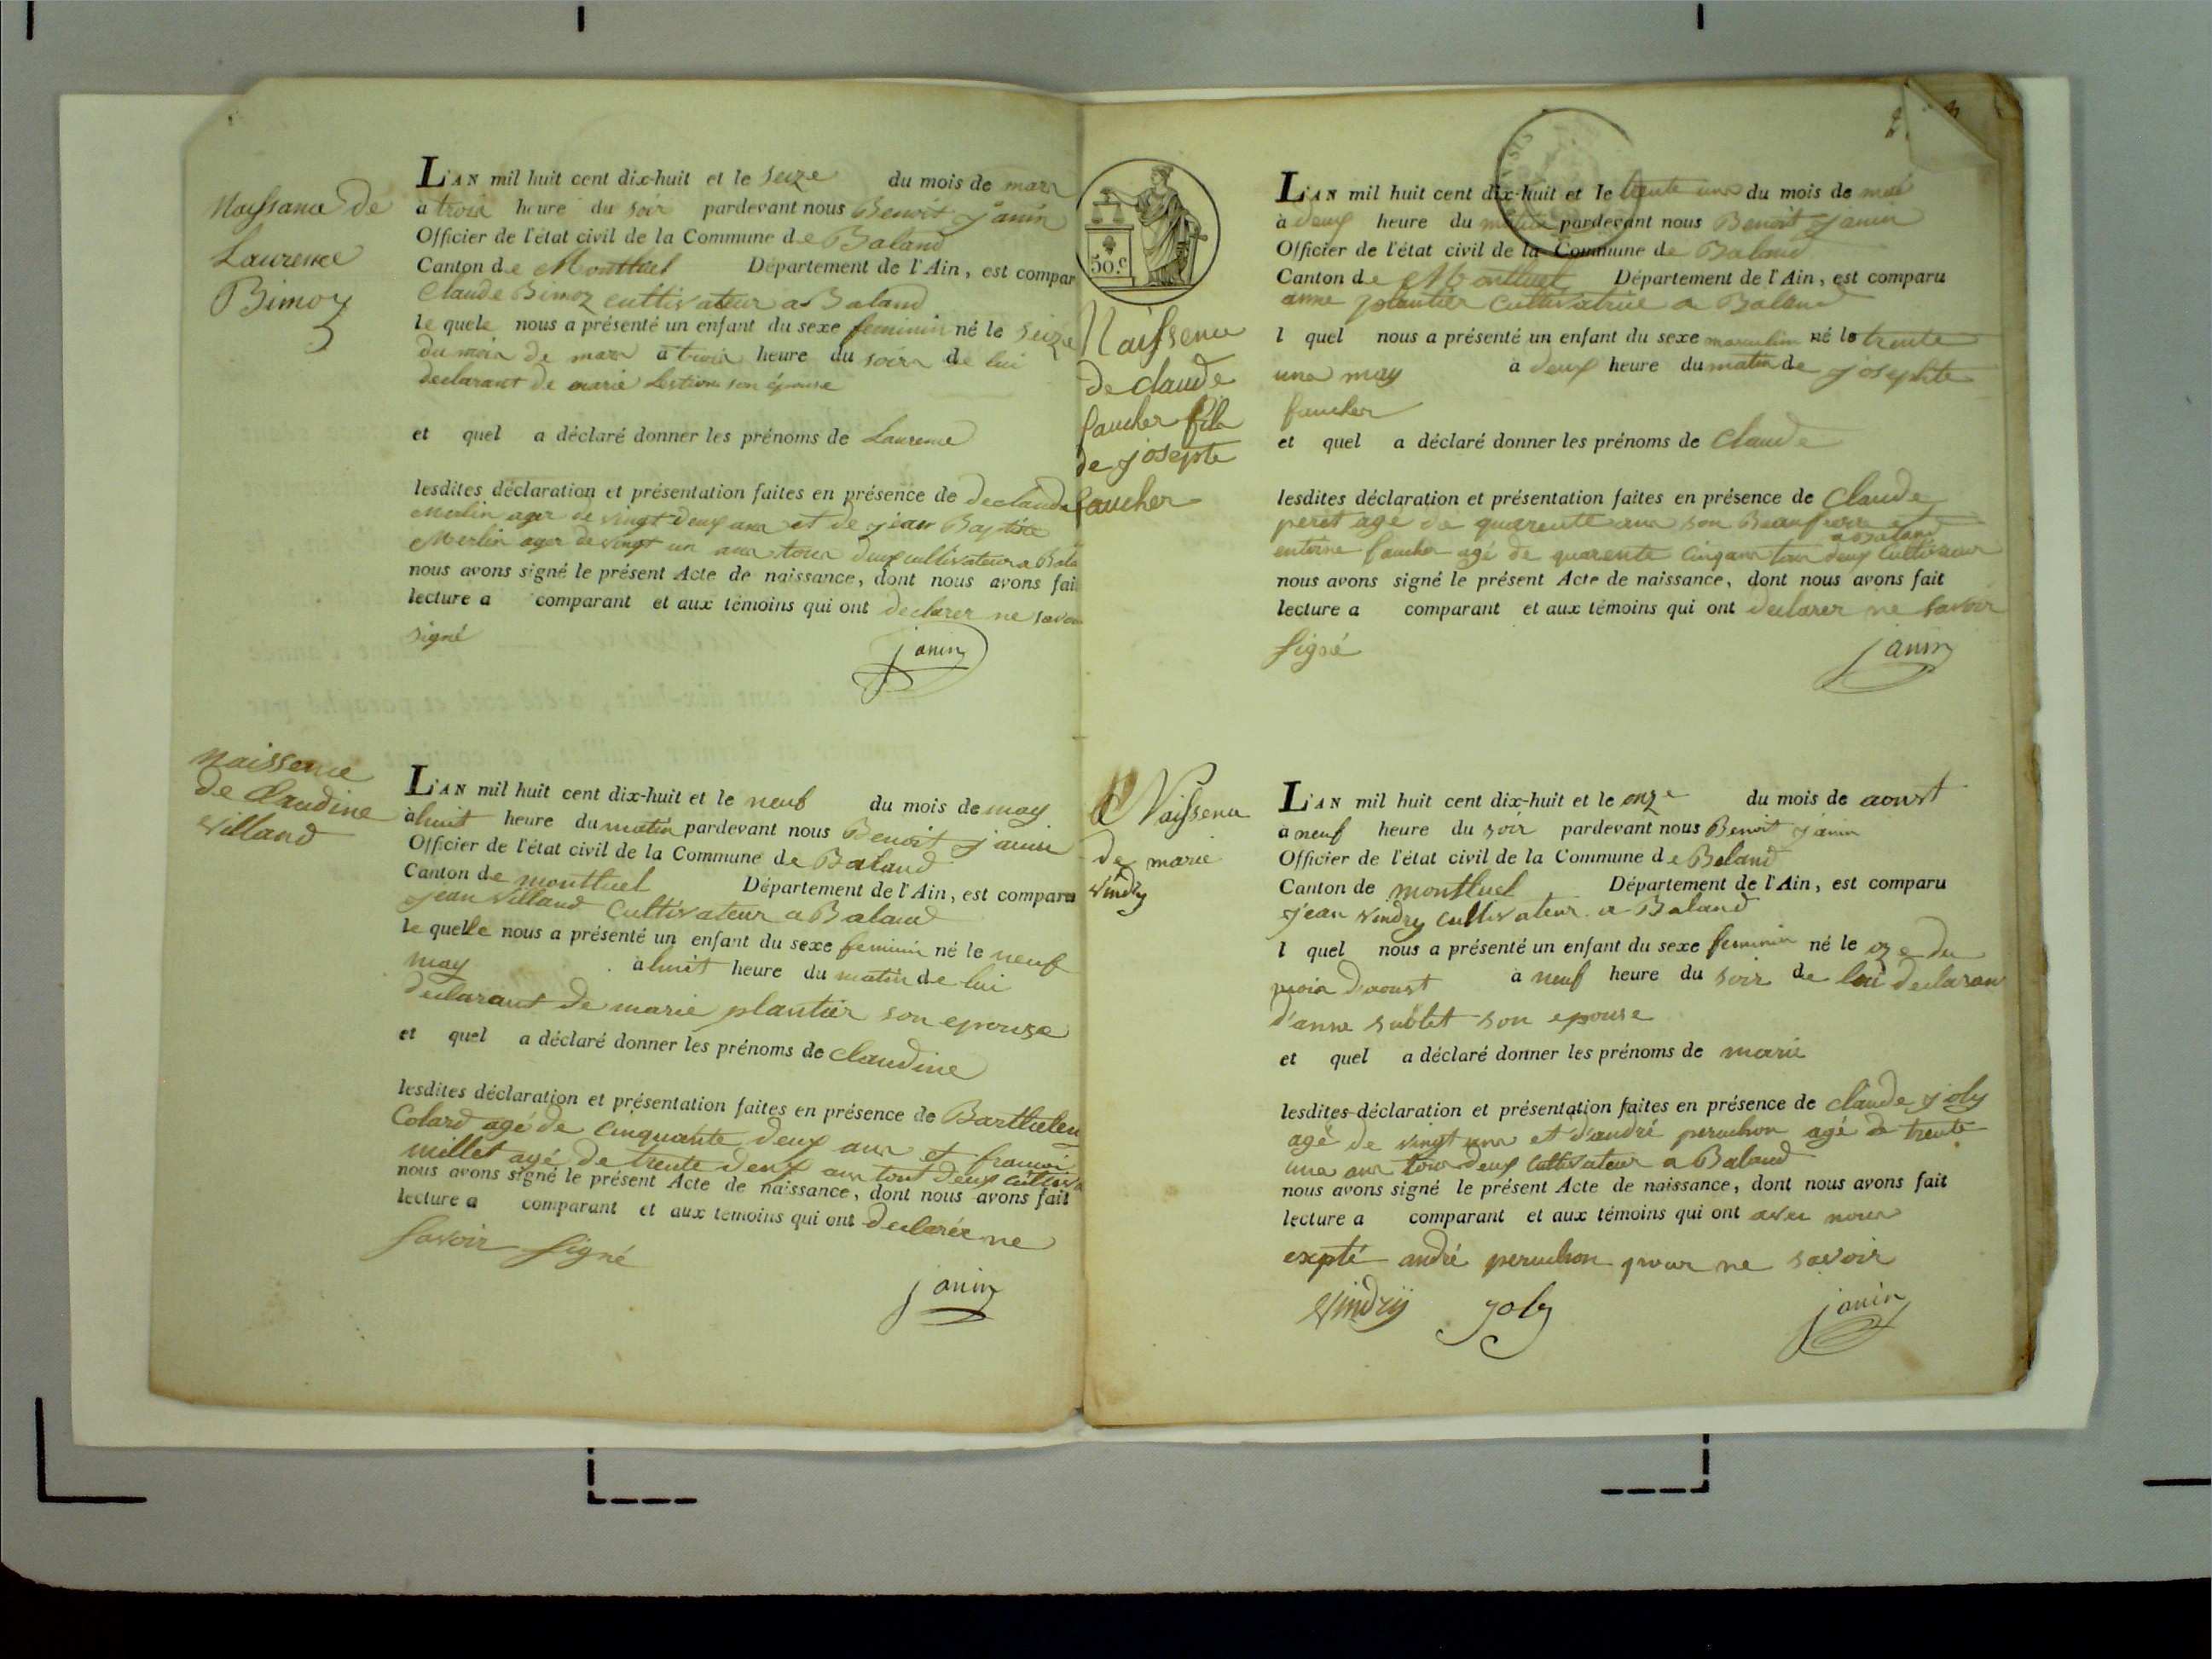 Naissance de
Laurence
Bimoz
L'AN mil huit cent dix-huit et le seize du mois de mars
à trois heure du soir pardevant nous Benoit janin
Officier de l'état civil de la Commune de Baland
Canton de Montluel Département de l'Ain, est compar
Claude Bimoz cultivateur a Baland
le quele nous a présenté un enfant du sexe feminin né le seize
du mois de mars à trois heure du soir de lui
declarant de marie son épouse
et quel a déclaré donner les prénoms de Laurence
lesdites déclaration et présentation faites en présence de declaude
Merlin ager de vingt deux ans et de jean Baptiste
Merlin ager de vingt un ans tous deux cultivateur a Bala
nous avons signé le présent Acte de naissance, dont nous avons fai
lecture a comparant et aux témoins qui ont declarer ne savoir
signé
janin
naissence
de Claudine
villand
L'AN mil huit cent dix-huit et le neuf du mois de may
à huit heure du matin pardevant nous Benoit janin
Officier de l'état civil de la Commune de Baland
Canton de montluel Département de l'Ain, est comparu
jean villand Cultivateur a Baland
le quelle nous a présenté un enfant du sexe feminin né le neuf
may à huit heure du matin de lui
declarant de marie plantier son epouse
et quel a déclaré donner les prénoms de Claudine
lesdites déclaration et présentation faites en présence de Barthelem
Colard agé de cinquante deux ans et francoi
millet agé de trente deux ans tout deux cultiva
nous avons signé le présent Acte de naissance, dont nous avons fait
lecture a comparant et aux témoins qui ont declarée ne
savoir signé
janin
50.c
Naissence
de claude
faucher fils
de josepte
faucher
L'AN mil huit cent dix-huit et le trente une du mois de mai
à deux heure du matin pardevant nous Benoit janin
Officier de l'état civil de la Commune de Baland
Canton de Montluel Département de l'Ain, est comparu
anne plantier Cultivatrice a Baland
l quel nous a présenté un enfant du sexe masculin né le trente
une may à deux heure du matin de josephte
faucher
et quel a déclaré donner les prénoms de Claude
lesdites déclaration et présentation faites en présence de Claude
peret agé de quarente ans son Beaufrere et
a Baland
entoine faucher agé de quarente cinq ans tous deux Cultivateur
nous avons signé le présent Acte de naissance, dont nous avons fait
lecture a comparant et aux témoins qui ont declarer ne savoir
signé
janin
Naissence
de marie
vindry
L'AN mil huit cent dix-huit et le onze du mois de aoust
à neuf heure du soir pardevant nous Benoit janin
Officier de l'état civil de la Commune de Baland
Canton de montluel Département de l'Ain, est comparu
jean vindry cultivateur a Baland
l quel nous a présenté un enfant du sexe feminin né le oze du
mois d'aoust à neuf heure du soir de lui declaran
d'anne sublet son epouse
et quel a déclaré donner les prénoms de marie
lesdites déclaration et présentation faites en présence de claude joly
agé de vingt et d'andré peruchon agé de trente
une ans tous deux cultivateur a Baland
nous avons signé le présent Acte de naissance, dont nous avons fait
lecture a comparant et aux témoins qui ont avec nous
expté andré peruchon pour ne savoir
vindry joly janin